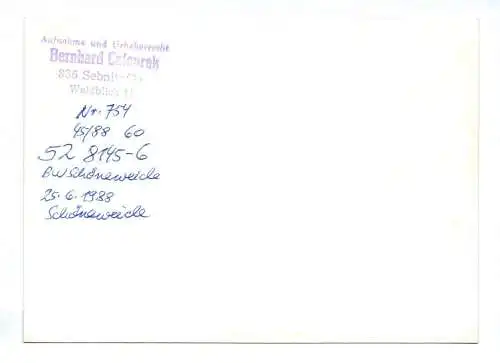 Aufnahme und Urheberrecht
Bernhard
836 Sebnitz
Waldblick 11
Nr. 754
45/88 60
52 8145-6
BW Schöneweide
25.6.1988
Schöneweide